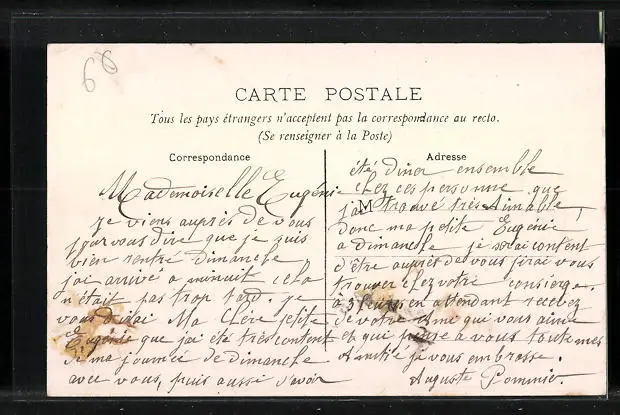 60
CARTE POSTALE
Tous les pays étrangers n'acceptent pas la correspondance au recto.
(Se renseigner à la Poste)
Correspondance
Mademoiselle Eugénie
je viens auprès de vous
pour vous dire que je suis
bien rentré dimanche
jai arrivé a minuit cela
n'était pas trop tard. je
vous dirai Ma Chère petite
Eugénie que jai été très content
de ma journée de dimanche
avec vous, puis aussi d'avoir
Adresse
été diner ensemble
chez ces personne que
jai trouvé très Aimable,
M
donc ma petite Eugénie
a dimanche je serai content
d'être auprès de vous jirai vous
trouver chez votre consierge.
à 3 heures en attendant recevez
de votre Ami qui vous aime
et qui pense à vous toutemes
Amitié je vous embrasse.
Auguste Pommier.